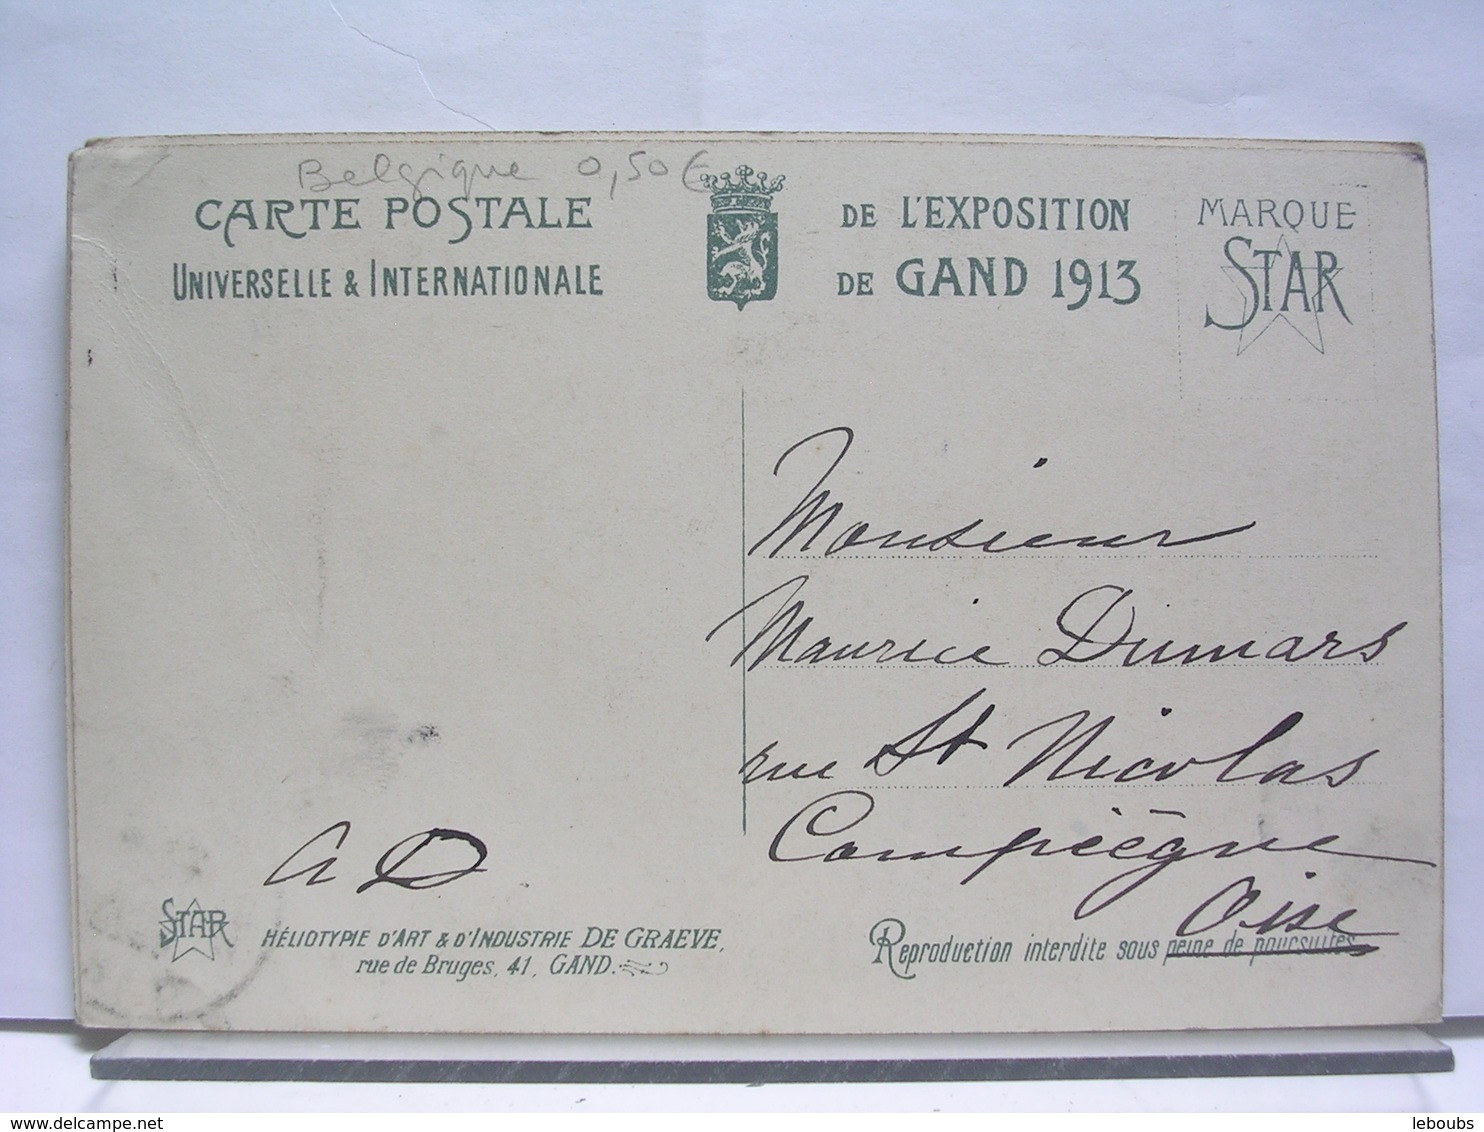 Belgique 0,50€
CARTE POSTALE
UNIVERSELLE & INTERNATIONALE
DE L'EXPOSITION
DE GAND 1913
MARQUE
STAR
Monsieur
Maurice Dumars
rue St Nicolas
Compiègne
Oise
A D
STAR
HÉLIOTYPIE D'ART & D'INDUSTRIE DE GRAEVE,
rue de Bruges, 41, GAND.
Reproduction interdite sous peine de poursuites
delcampe.net
leboubs